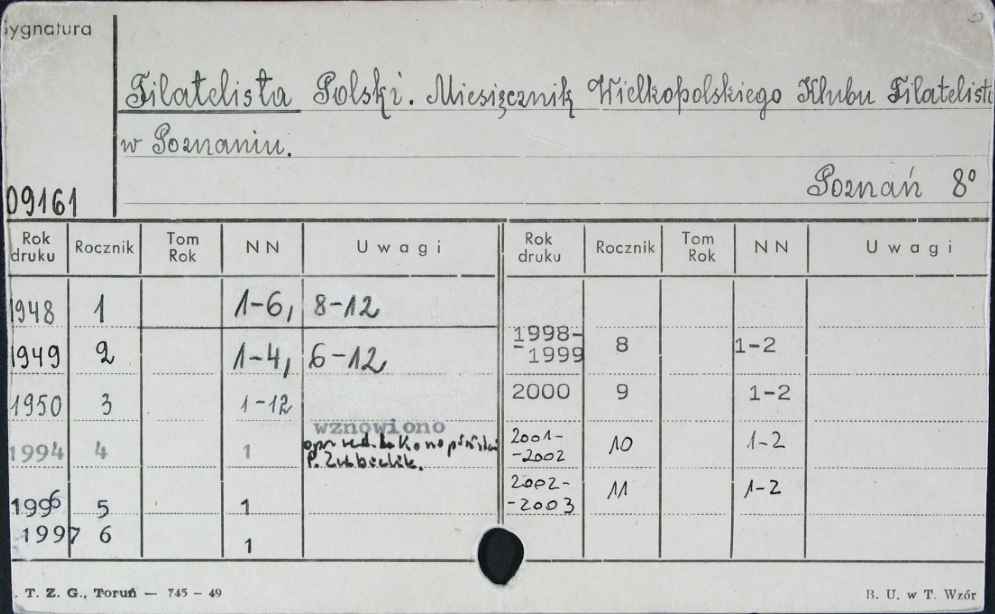 Sygnatura
Filatelista Polski. Miesięcznik Wielkopolskiego Klubu Filatelist
w Poznaniu.
Poznań 8°
09161
Rok druku Rocznik Tom Rok NN Uwagi Rok druku Rocznik Tom Rok NN Uwagi
1948 1 1-6, 8-12
1949 2 1-4, 6-12
1998-1999 8 1-2
1950 3 1-12
2000 9 1-2
wznowiono
1994 4 1
P.
2001-2002 10 1-2
1996 5 1
2002-2003 11 1-2
1997 6 1
. T. Z. G., Toruń — 745 - 49
B. U. w T. Wzór